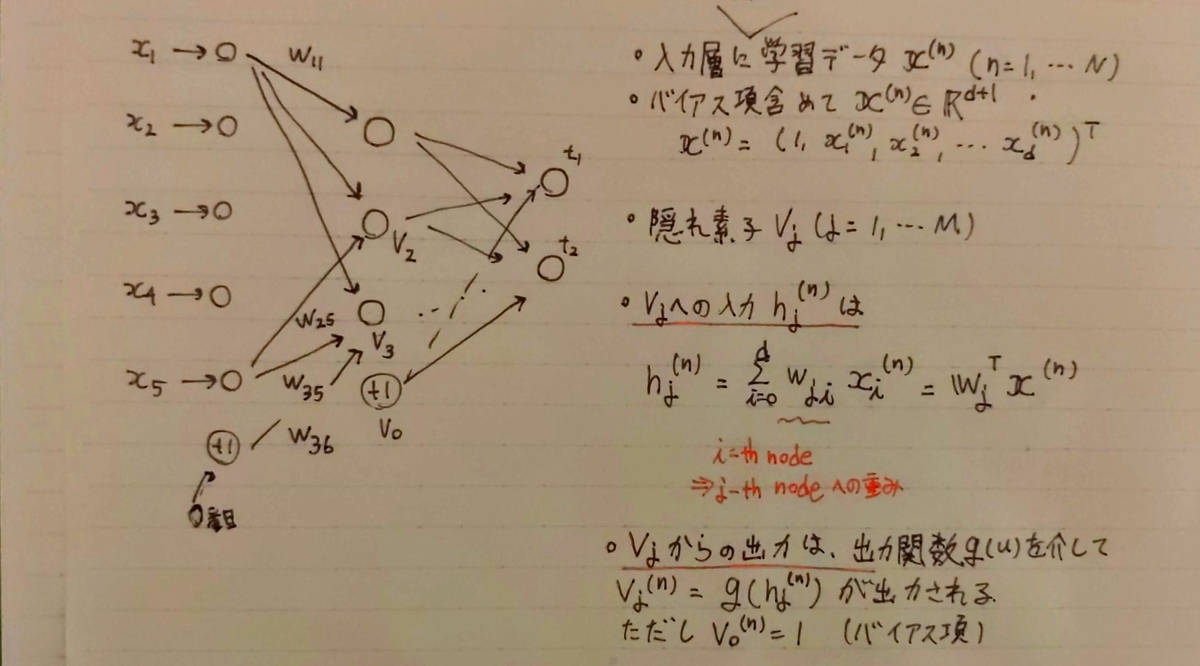 x₁ → ○
w₁₁
x₂ → ○
t₁
x₃ → ○
V₂
t₂
x₄ → ○
w₂₅
V₃
x₅ → ○
w₃₅
+1
V₀
+1
w₃₆
0番目
• 入力層に学習データ x⁽ⁿ⁾ (n=1, … N)
• バイアス項含めて x⁽ⁿ⁾ ∈ ℝ^{d+1}
x⁽ⁿ⁾ = (1, x₁⁽ⁿ⁾, x₂⁽ⁿ⁾, … x_d⁽ⁿ⁾)ᵀ
• 隠れ素子 V_j (j=1, … M)
• V_jへの入力 h_j⁽ⁿ⁾ は
h_j⁽ⁿ⁾ = Σ_{i=0}^{d} w_{ji} x_i⁽ⁿ⁾ = w_jᵀ x⁽ⁿ⁾
i-th node
⇒ j-th node への重み
• V_jからの出力は、出力関数g(u)を介して
V_j⁽ⁿ⁾ = g(h_j⁽ⁿ⁾) が出力される.
ただし V₀⁽ⁿ⁾ = 1 (バイアス項)